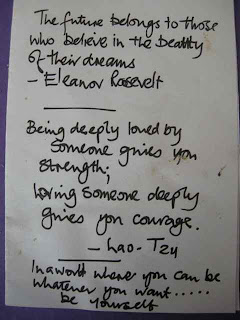 The future belongs to those
who believe in the beauty
of their dreams
- Eleanor Roosevelt
Being deeply loved by
someone gives you
strength;
loving someone deeply
gives you courage.
- Lao-Tzu
In a world where you can be
whatever you want.....
be yourself